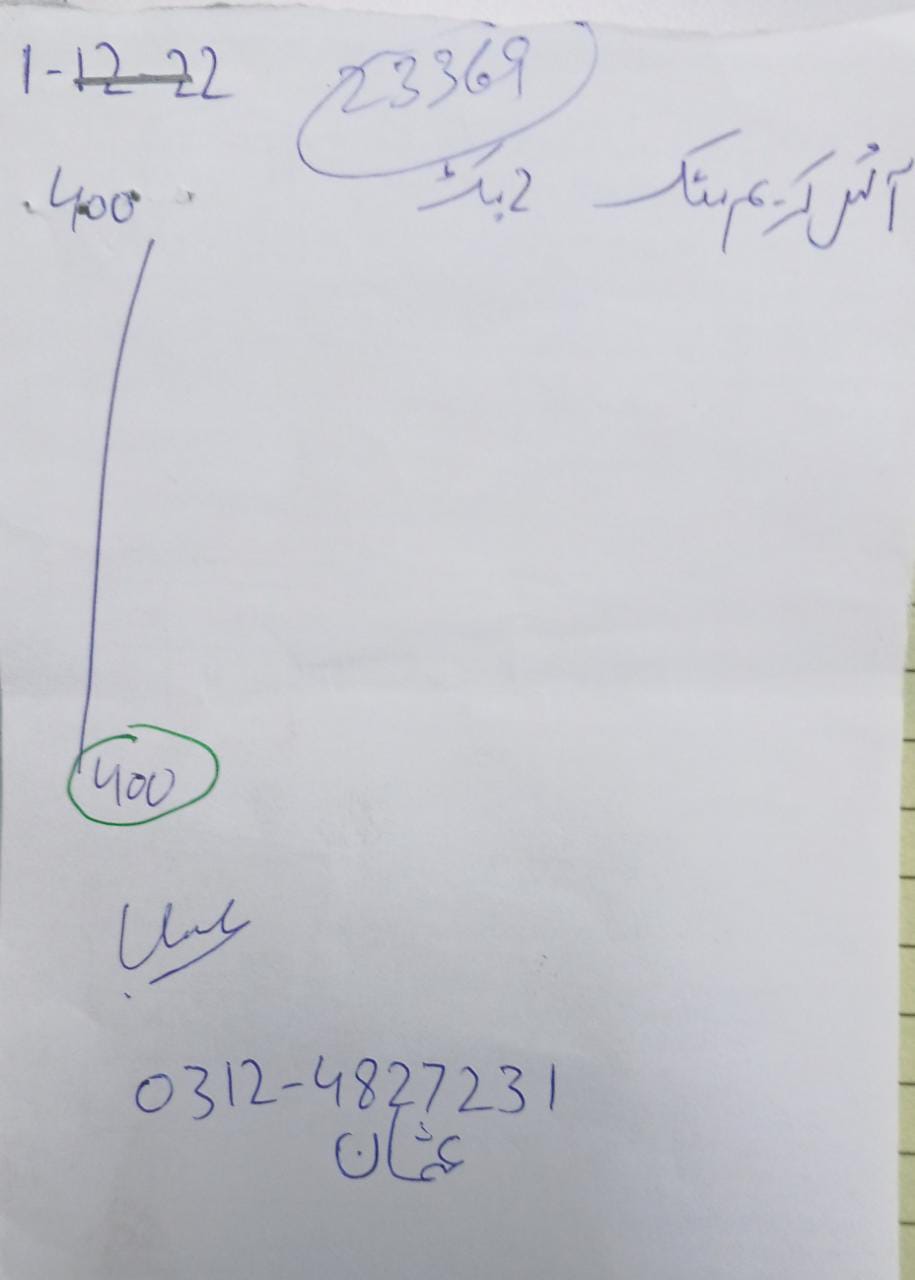 1-12-22
23369
آئس کریم سٹک 2 پیکٹ 400
400
0312-4827231
عثمان